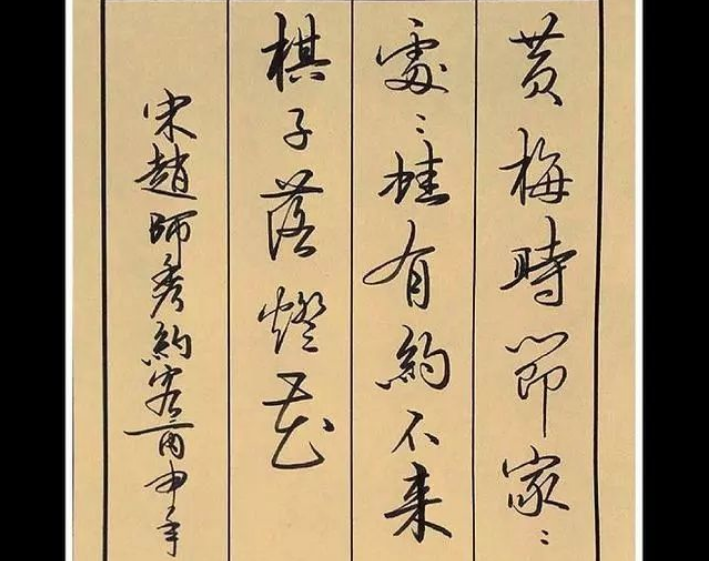 黄梅時節家〻
處〻蛙有約不来
棋子落燈花
宋趙師秀約客丙申年